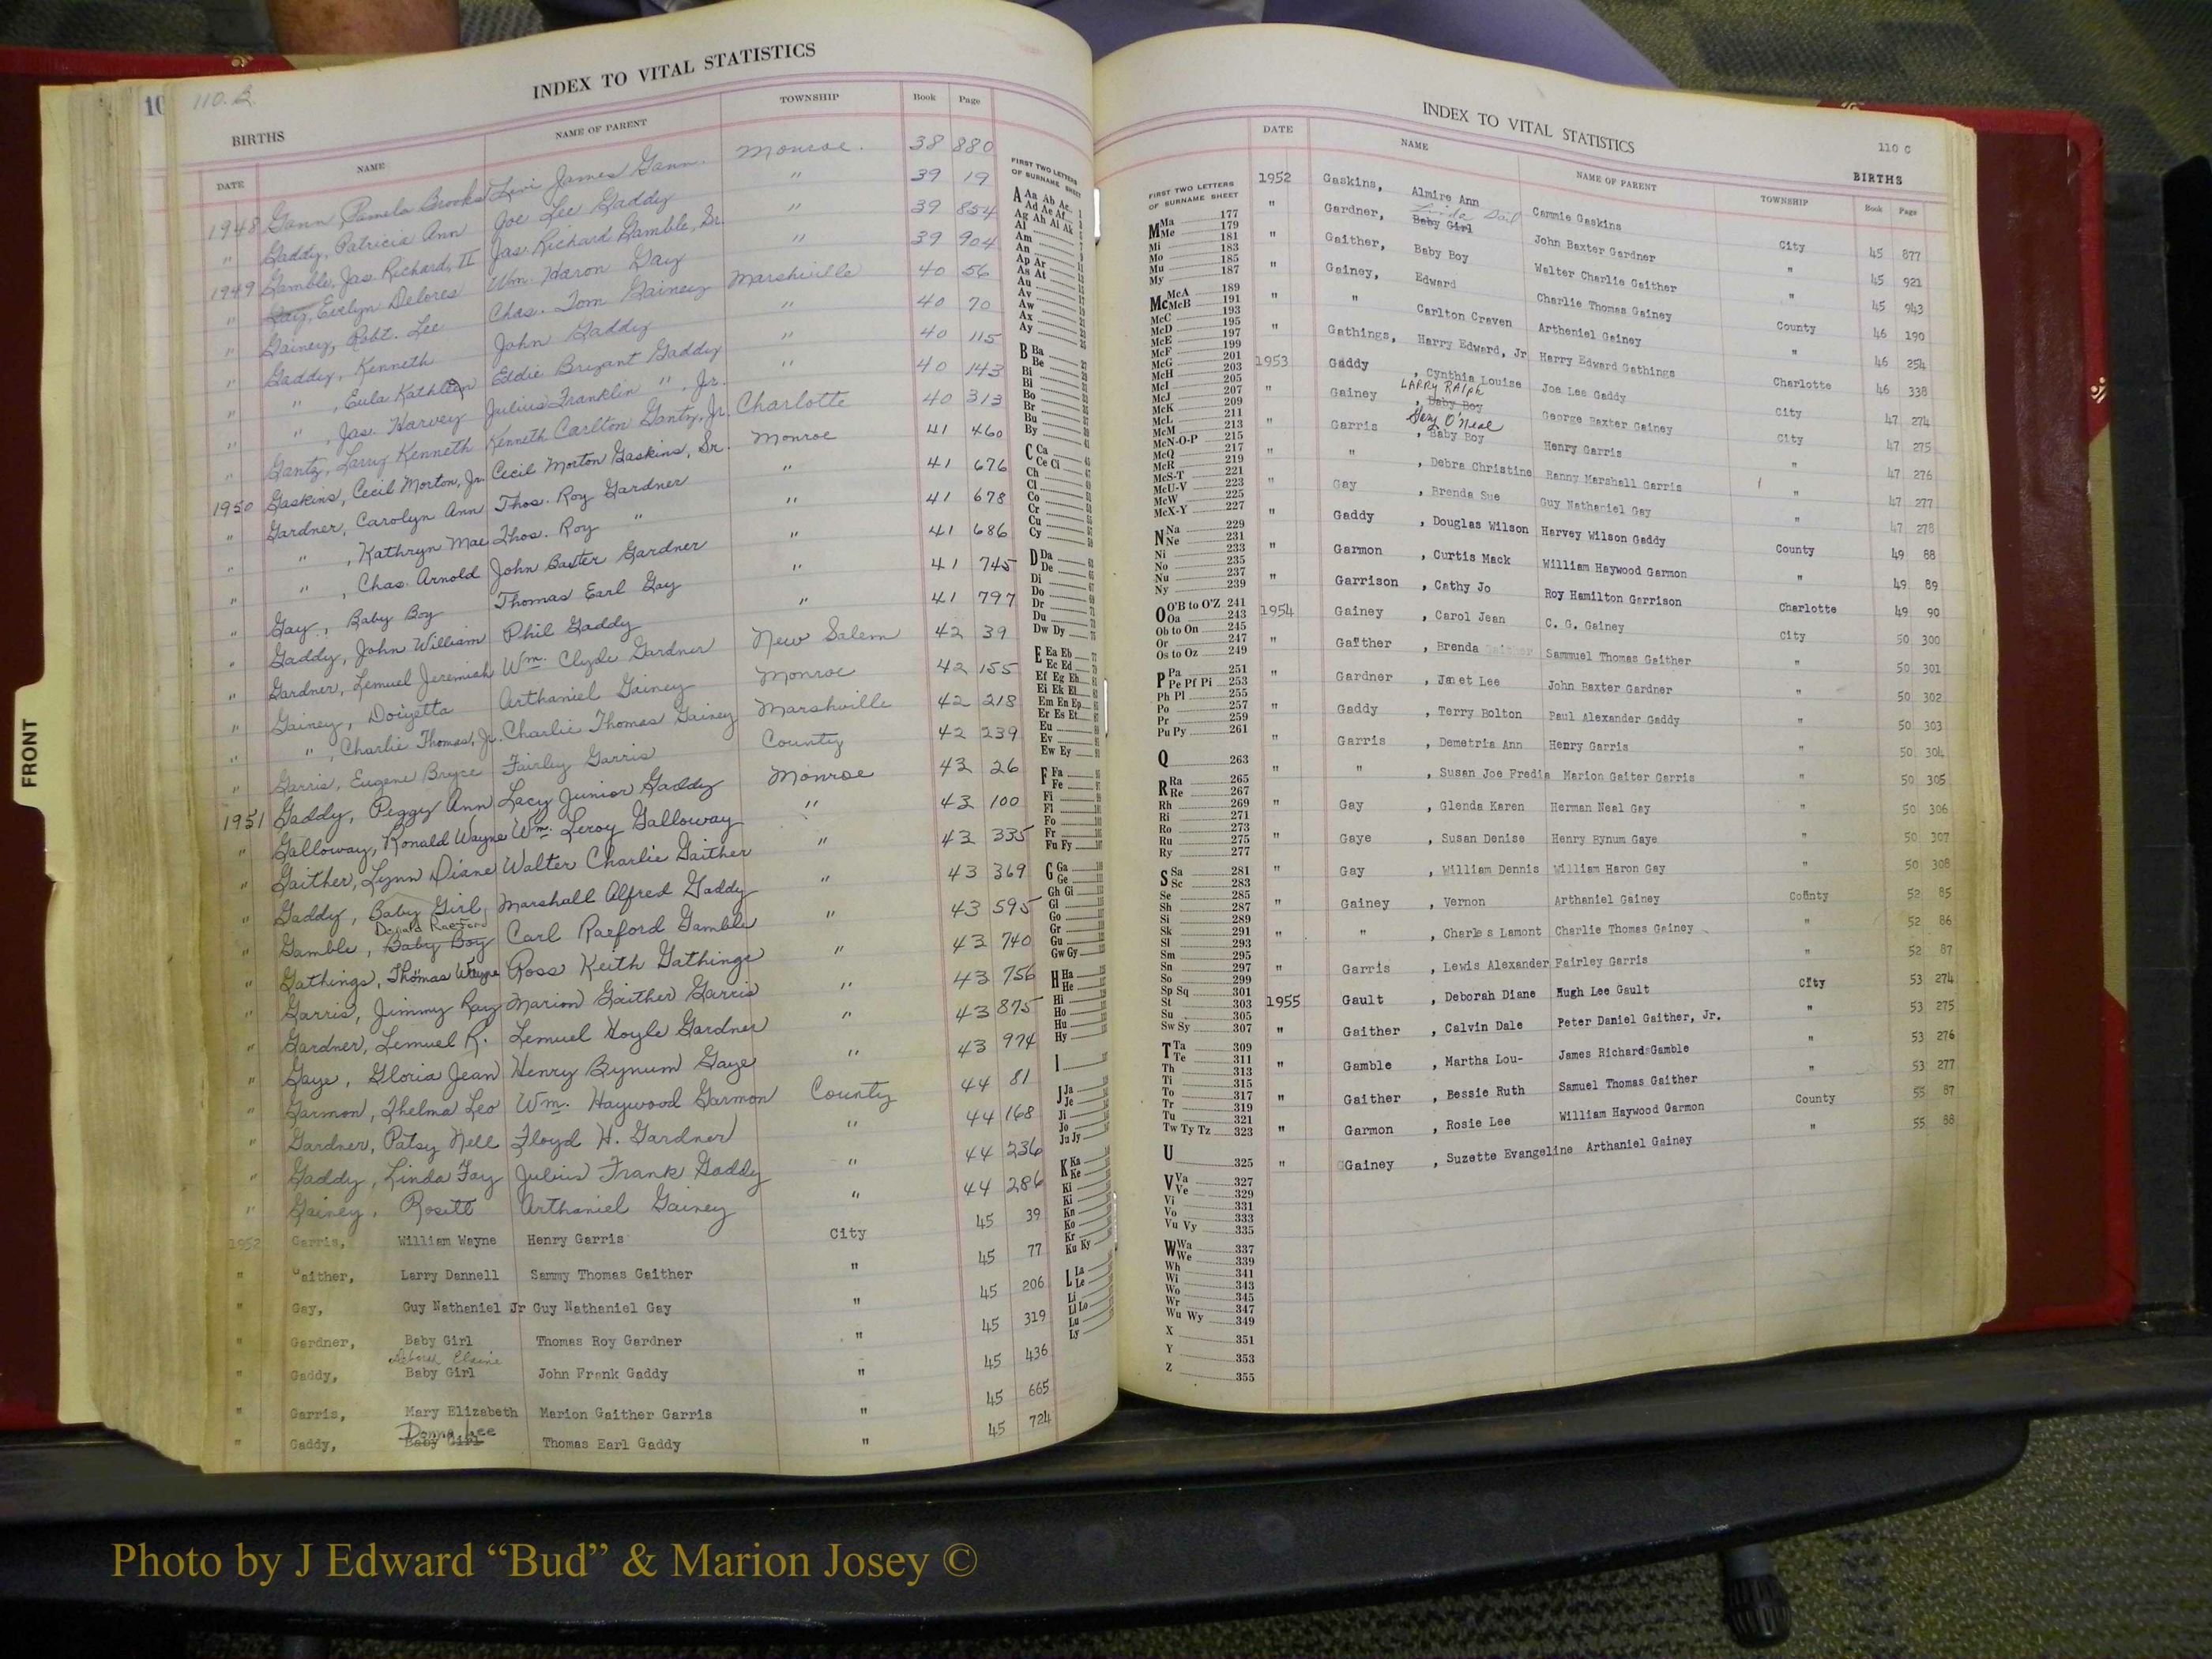 FRONT
10
110. B.
INDEX TO VITAL STATISTICS
BIRTHS
DATE NAME NAME OF PARENT TOWNSHIP Book Page
1948 Gann Pamela Brooks Levi James Gann. Monroe. 38 880
" Gaddy, Patricia Ann Joe Lee Gaddy " 39 19
1949 Gamble, Jas. Richard, II Jas. Richard Gamble, Sr. " 39 854
" Gay, Evelyn Delores Wm. Haron Gay " 39 904
" Gainey, Robt. Lee Chas. Tom Gainey Marshville 40 56
" Gaddy, Kenneth John Gaddy " 40 70
" " , Eula Kathleen Eddie Bryant Gaddy " 40 115
" " , Jas. Harvey Julius Franklin " , Jr. " 40 143
" Gantz, Larry Kenneth Kenneth Carlton Gantz, Jr. Charlotte 40 313
1950 Gaskins, Cecil Morton, Jr. Cecil Morton Gaskins, Sr. Monroe 41 460
" Gardner, Carolyn Ann Thos. Roy Gardner " 41 676
" " , Kathryn Mae Thos. Roy " " 41 678
" " , Chas. Arnold John Baxter Gardner " 41 686
" Gay, Baby Boy Thomas Earl Gay " 41 745
" Gaddy, John William Phil Gaddy " 41 797
" Gardner, Lemuel Jeremiah Wm. Clyde Gardner New Salem 42 39
" Gainey, Arthaniel Gainey Monroe 42 155
" " , Charlie Thomas, Jr. Charlie Thomas Gainey Marshville 42 218
" Garris, Eugene Bryce Fairley Garris County 42 239
1951 Gaddy, Peggy Ann Lacy Junior Gaddy Monroe 43 26
" Galloway, Ronald Wayne Wm. Leroy Galloway " 43 100
" Gaither, Lynn Diane Walter Charlie Gaither " 43 335
" Gaddy, Baby Girl, Marshall Alfred Gaddy " 43 369
Donald Raeford
" Gamble, Baby Boy Carl Raeford Gamble " 43 595
" Gathings, Thomas Wayne Ross Keith Gathings " 43 740
" Garris, Jimmy Ray Marion Gaither Garris " 43 756
" Gardner, Lemuel R. Lemuel Hoyle Gardner " 43 875
" Gaye, Gloria Jean Henry Bynum Gaye " 43 974
" Garmon, Thelma Leo Wm. Haywood Garmon County 44 81
" Gardner, Patsy Nell Floyd H. Gardner " 44 168
" Gaddy, Linda Fay Julius Frank Gaddy " 44 236
" Gainey, Rosett Arthaniel Gainey " 44 286
1952 Garris, William Wayne Henry Garris City 45 39
" Gaither, Larry Dannell Sammy Thomas Gaither " 45 77
" Gay, Guy Nathaniel Jr Guy Nathaniel Gay " 45 206
" Gardner, Baby Girl Thomas Roy Gardner " 45 319
Deborah Elaine
" Gaddy, Baby Girl John Frank Gaddy " 45 436
" Garris, Mary Elizabeth Marion Gaither Garris " 45 665
Donna Lee
" Gaddy, Baby Girl Thomas Earl Gaddy " 45 724
FIRST TWO LETTERS
OF SURNAME SHEET
A Aa Ab Ac
Ad Ae Af
Ag Ah Ai Ak
Al
Am
An
Ap Ar
As At
Au
Av
Aw
Ax
Ay
B Ba
Be
Bi
Bl
Bo
Br
Bu
By
C Ca
Ce Ci
Ch
Cl
Co
Cr
Cu
Cy
D Da
De
Di
Do
Dr
Du
Dw Dy
E Ea Eb
Ec Ed
Ef Eg Eh
Ei Ek El
Em En Ep
Er Es Et
Eu
Ev
Ew Ey
F Fa
Fe
Fi
Fl
Fo
Fr
Fu Fy
G Ga
Ge
Gh Gi
Gl
Go
Gr
Gu
Gw Gy
H Ha
He
Hi
Ho
Hu
Hy
I
J Ja
Je
Ji
Jo
Ju Jy
K Ka
Ke
Ki
Kl
Kn
Ko
Kr
Ku Ky
L La
Le
Li
Ll Lo
Lu
Ly
INDEX TO VITAL STATISTICS
110 C
BIRTHS
DATE NAME NAME OF PARENT TOWNSHIP Book Page
1952 Gaskins, Almire Ann Cammie Gaskins City 45 877
Linda Gail
" Gardner, Baby Girl John Baxter Gardner " 45 921
" Gaither, Baby Boy Walter Charlie Gaither " 45 943
" Gainey, Edward Charlie Thomas Gainey County 46 190
" " Carlton Craven Artheniel Gainey " 46 254
" Gathings, Harry Edward, Jr Harry Edward Gathings Charlotte 46 338
1953 Gaddy , Cynthia Louise Joe Lee Gaddy City 47 274
LARRY RAlph
" Gainey , Baby Boy George Baxter Gainey City 47 275
Gary O'Neal
" Garris , Baby Boy Henry Garris " 47 276
" " , Debra Christine Hanny Marshall Garris " 47 277
" Gay , Brenda Sue Guy Nathaniel Gay " 47 278
" Gaddy , Douglas Wilson Harvey Wilson Gaddy County 49 88
" Garmon , Curtis Mack William Haywood Garmon " 49 89
" Garrison , Cathy Jo Roy Hamilton Garrison Charlotte 49 90
1954 Gainey , Carol Jean C. G. Gainey City 50 300
" Gaither , Brenda Sammuel Thomas Gaither " 50 301
" Gardner , Janet Lee John Baxter Gardner " 50 302
" Gaddy , Terry Bolton Paul Alexander Gaddy " 50 303
" Garris , Demetria Ann Henry Garris " 50 304
" " , Susan Joe Fredia Marion Gaiter Garris " 50 305
" Gay , Glenda Karen Herman Neal Gay " 50 306
" Gaye , Susan Denise Henry Bynum Gaye " 50 307
" Gay , William Dennis William Haron Gay " 50 308
" Gainey , Vernon Arthaniel Gainey County 52 85
" " , Charles Lamont Charlie Thomas Gainey " 52 86
" Garris , Lewis Alexander Fairley Garris " 52 87
1955 Gault , Deborah Diane Hugh Lee Gault City 53 274
" Gaither , Calvin Dale Peter Daniel Gaither, Jr. " 53 275
" Gamble , Martha Lou- James Richard Gamble " 53 276
" Gaither , Bessie Ruth Samuel Thomas Gaither " 53 277
" Garmon , Rosie Lee William Haywood Garmon County 55 87
" Gainey , Suzette Evangeline Arthaniel Gainey " 55 88
FIRST TWO LETTERS
OF SURNAME SHEET
M Ma 177
Me 179
Mi 181
Mo 183
Mu 185
My 187
Mc McA 189
McB 191
McC 193
McD 195
McE 197
McF 199
McG 201
McH 203
McI 205
McJ 207
McK 209
McL 211
McM 213
McN-O-P 215
McQ 217
McR 219
McS-T 221
McU-V 223
McW 225
McX-Y 227
N Na 229
Ne 231
Ni 233
No 235
Nu 237
Ny 239
O O'B to O'Z 241
Oa 243
Ob to On 245
Or 247
Os to Oz 249
P Pa 251
Pe Pf Pi 253
Ph Pl 255
Po 257
Pr 259
Pu Py 261
Q 263
R Ra 265
Re 267
Rh 269
Ri 271
Ro 273
Ru 275
Ry 277
S Sa 281
Sc 283
Se 285
Sh 287
Si 289
Sk 291
Sl 293
Sm 295
Sn 297
So 299
Sp Sq 301
St 303
Su 305
Sw Sy 307
T Ta 309
Te 311
Th 313
Ti 315
To 317
Tr 319
Tu 321
Tw Ty Tz 323
U 325
V Va 327
Ve 329
Vi 331
Vo 333
Vu Vy 335
W Wa 337
We 339
Wh 341
Wi 343
Wo 345
Wr 347
Wu Wy 349
X 351
Y 353
Z 355
Photo by J Edward “Bud” & Marion Josey ©